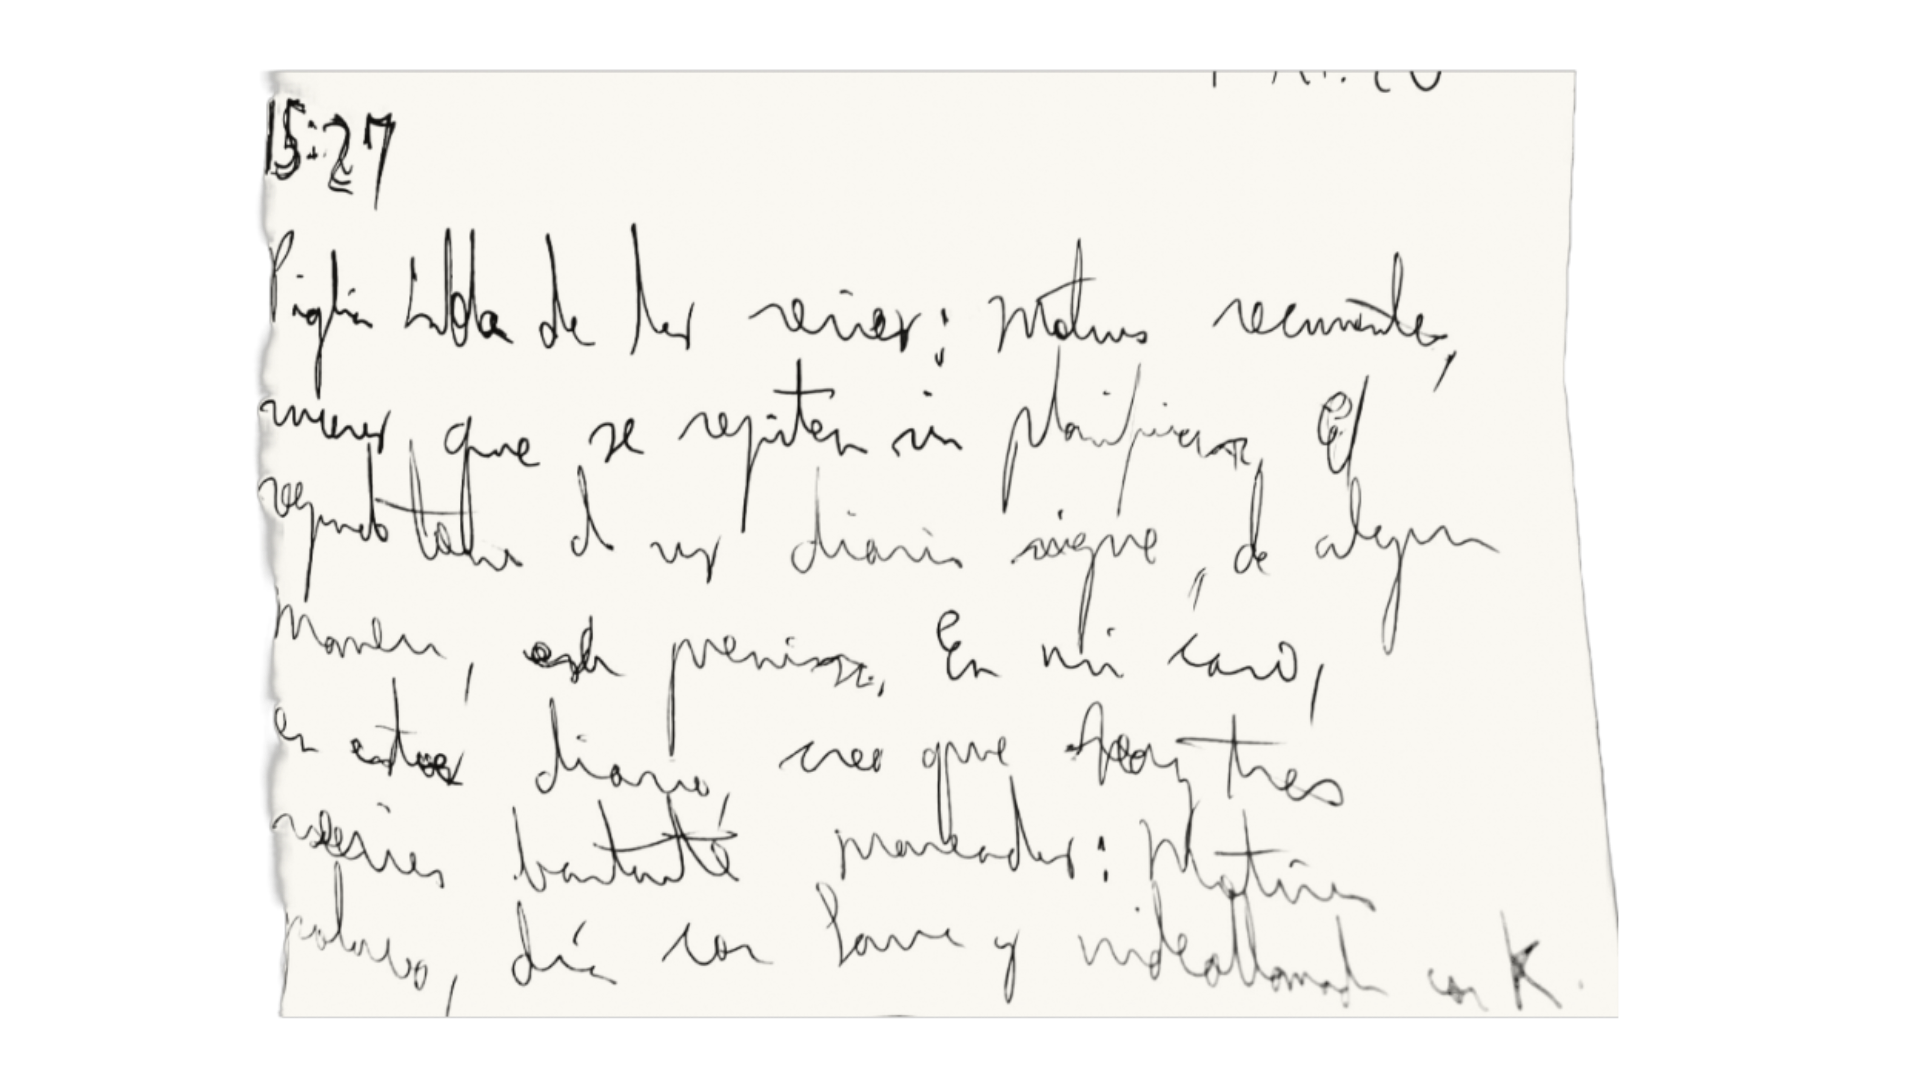 15:27
Piglia habla de las series: Motivos recurrentes,
que se repiten sin planificarse. El
de un diario sigue, de alguna
manera, esta premisa. En mi caso,
en estos diario, creo que hay tres
series bastante marcadas: Matías
polaco, día con Laura y videollamada con K.